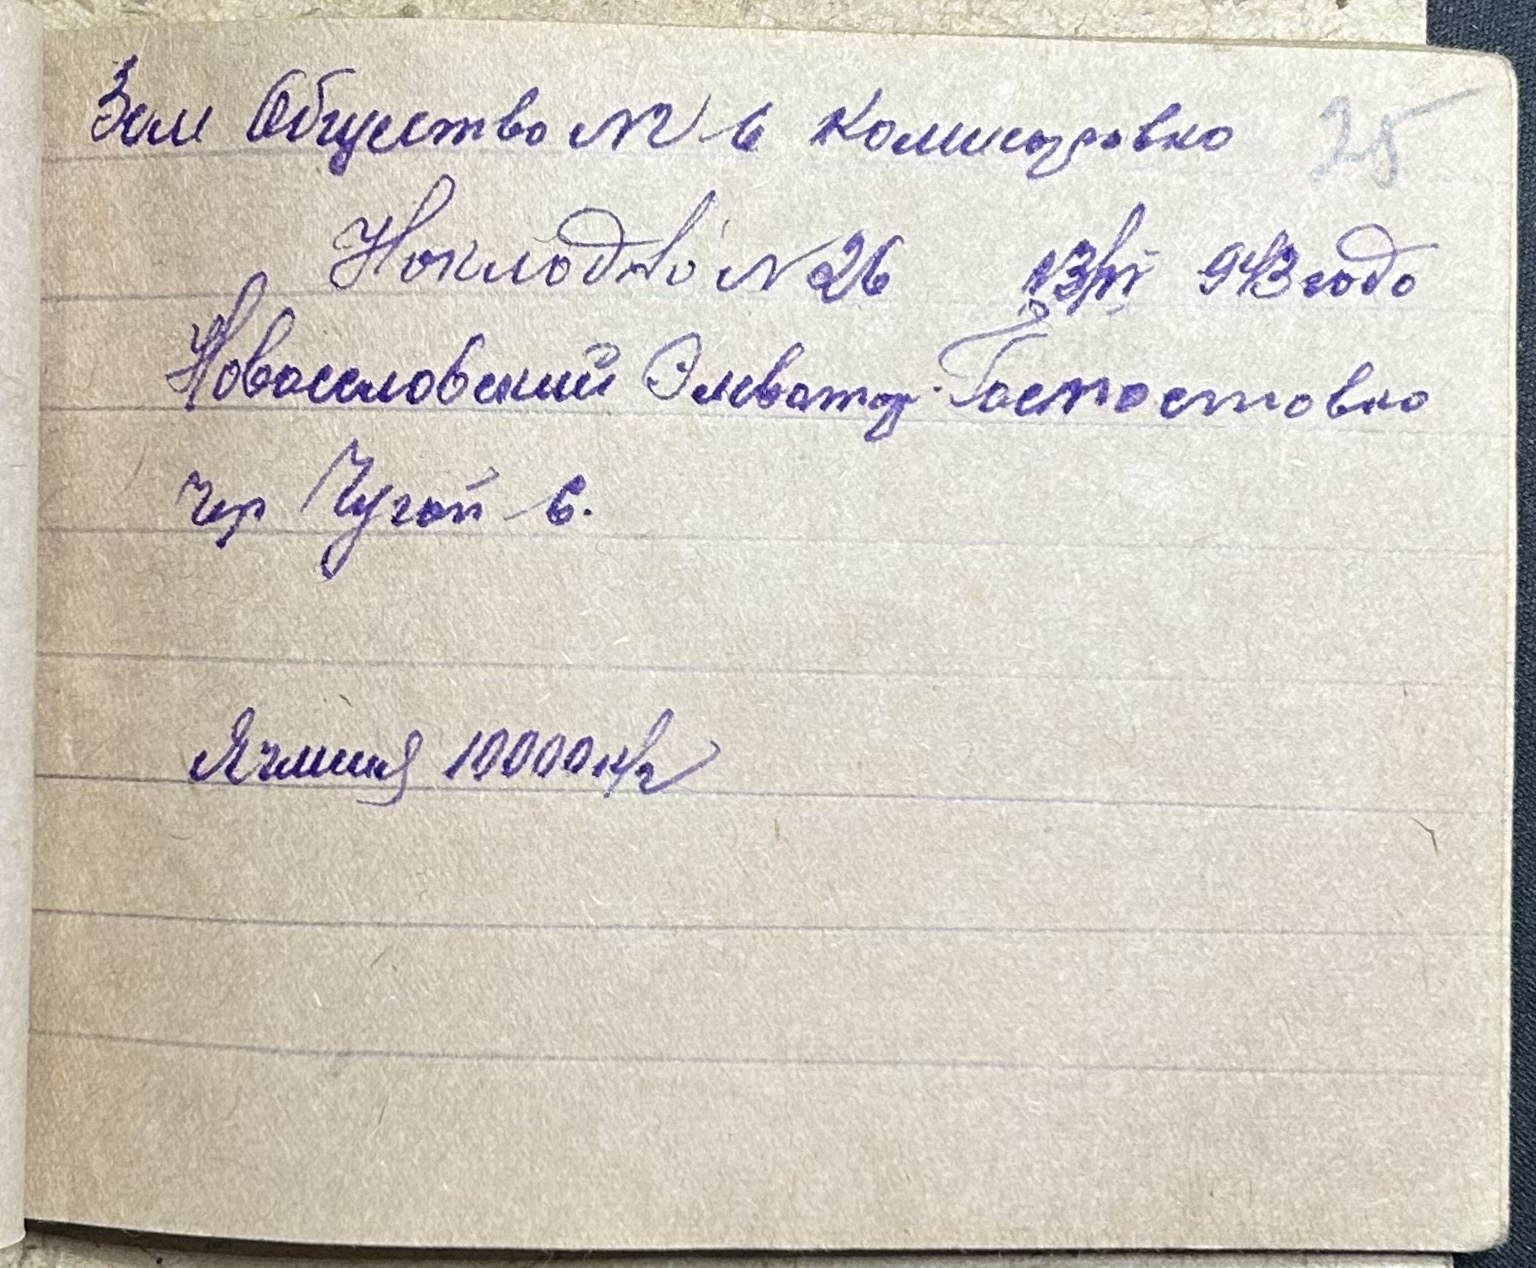 Зем Общество № 6 Комисаровка 25
Накладная № 26 13/VI 943 года
Новоселовский Элеватор
чер Чугай 6.
Ячменя 10000 к/г